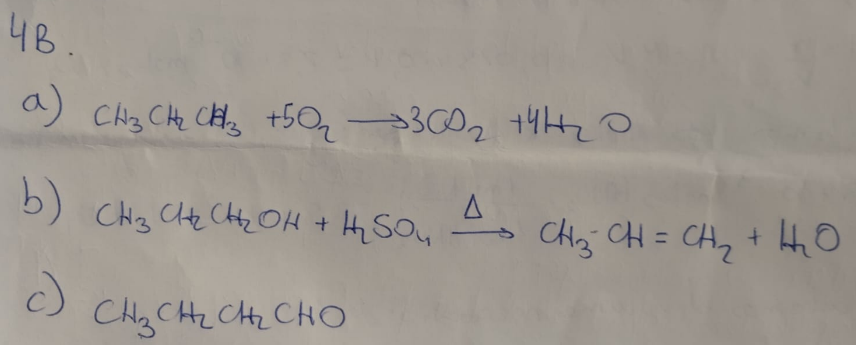 4B.
a) CH₃CH₂CH₃ +5O₂ → 3CO₂ +4H₂O
b) CH₃CH₂CH₂OH + H₂SO₄ Δ→ CH₃-CH=CH₂ + H₂O
c) CH₃CH₂CH₂CHO